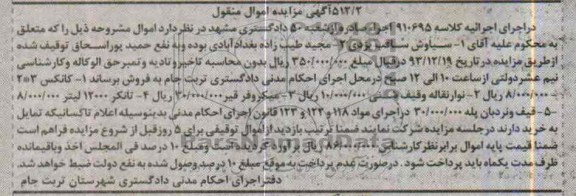 ۵۱۳/۲آگهی مزایده اموال منقول
دراجرای اجرائیه کلاسه ۹۱۰۶۹۵ اجرا صادره ازشعبه ۵۰ دادگستری مشهد در نظر دارد اموال مشروحه ذیل را که متعلق
به محکوم علیه آقای ۱- سیاوش یزدی ۲- مجید طیب زاده بغدادآبادی بوده و به نفع حمید پوراسحاق توقیف شده
ازطریق مزایده در تاریخ ۹۳/۱۲/۱۹ درقبال مبلغ ۳۵۰/۰۰۰/۰۰۰ ریال بدون محاسبه تاخیر و تادیه و تمبر حق الوکاله و کارشناسی
نیم عشر دولتی ازساعت ۱۰ الی ۱۲ صبح درمحل اجرای احکام مدنی دادگستری تربت جام به فروش برساند ۱- کانکس ۳*۲
۸/۰۰۰/۰۰۰ ریال ۲- نوارنقاله ۱۰/۰۰۰/۰۰۰ ریال ۳- میکروفر قیر ۳۰/۰۰۰/۰۰۰ ریال ۴- تانکر ۱۲۰۰۰ لیتر ۸/۰۰۰/۰۰۰
۵- قیف ونردبان پله ۳۰/۰۰۰/۰۰۰ دراجرای مواد ۱۱۸ و ۱۲۴ و ۱۲۳ قانون اجرای احکام مدنی بدینوسیله اعلام تاکسانیکه تمایل
به خرید دارند درجلسه مزایده شرکت نمایند ضمنا ترتیب بازدید ازاموال توقیفی برای ۵ روزقبل از شروع مزایده فراهم است
ضمنا قیمت پایه اموال برابرنظر کارشناس ریال برآورد گردیده است و مبلغ ۱۰ درصد فی المجلس اخذ وباقیمانده
ظرف مدت یکماه باید پرداخت شود. درصورت عدم پرداخت به موقع مبلغ ۱۰ درصد وصول شده به نفع دولت ضبط خواهد شد.
دفتر اجرای احکام مدنی دادگستری شهرستان تربت جام